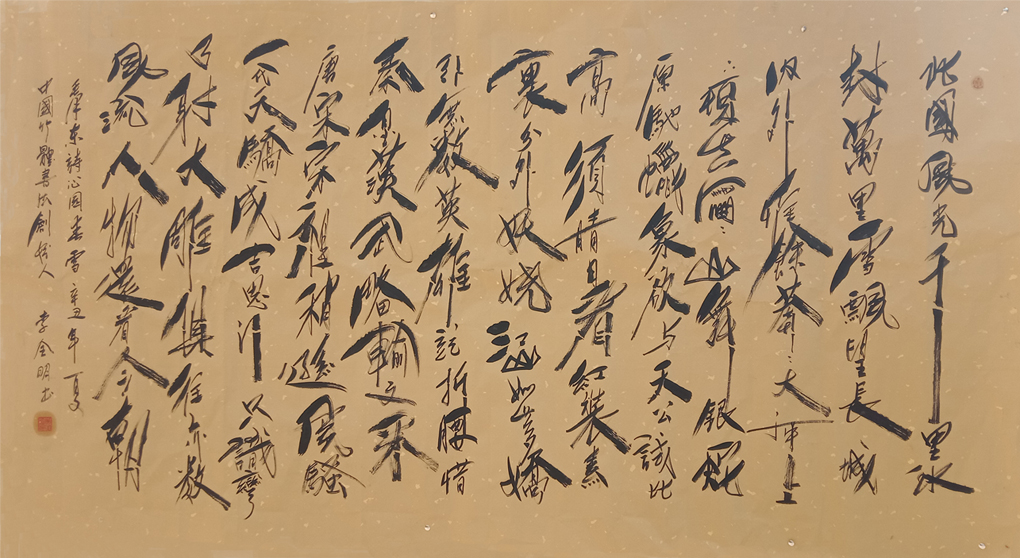 北國風光千里冰
封萬里雪飄望長城
内外惟餘莽〻大河上
下頓失滔〻山舞銀蛇
原馳蠟象欲与天公試比
高須晴日看紅裝素
裹分外妖嬈江山如此多嬌
引無數英雄競折腰惜
秦皇漢武略輸文采
唐宗宋祖稍遜風騷
一代天驕成吉思汗只識彎
弓射大雕俱往矣數
風流人物還看今朝
毛澤東詩沁園春雪 辛丑年夏
中國竹體書法創始人 李金明书